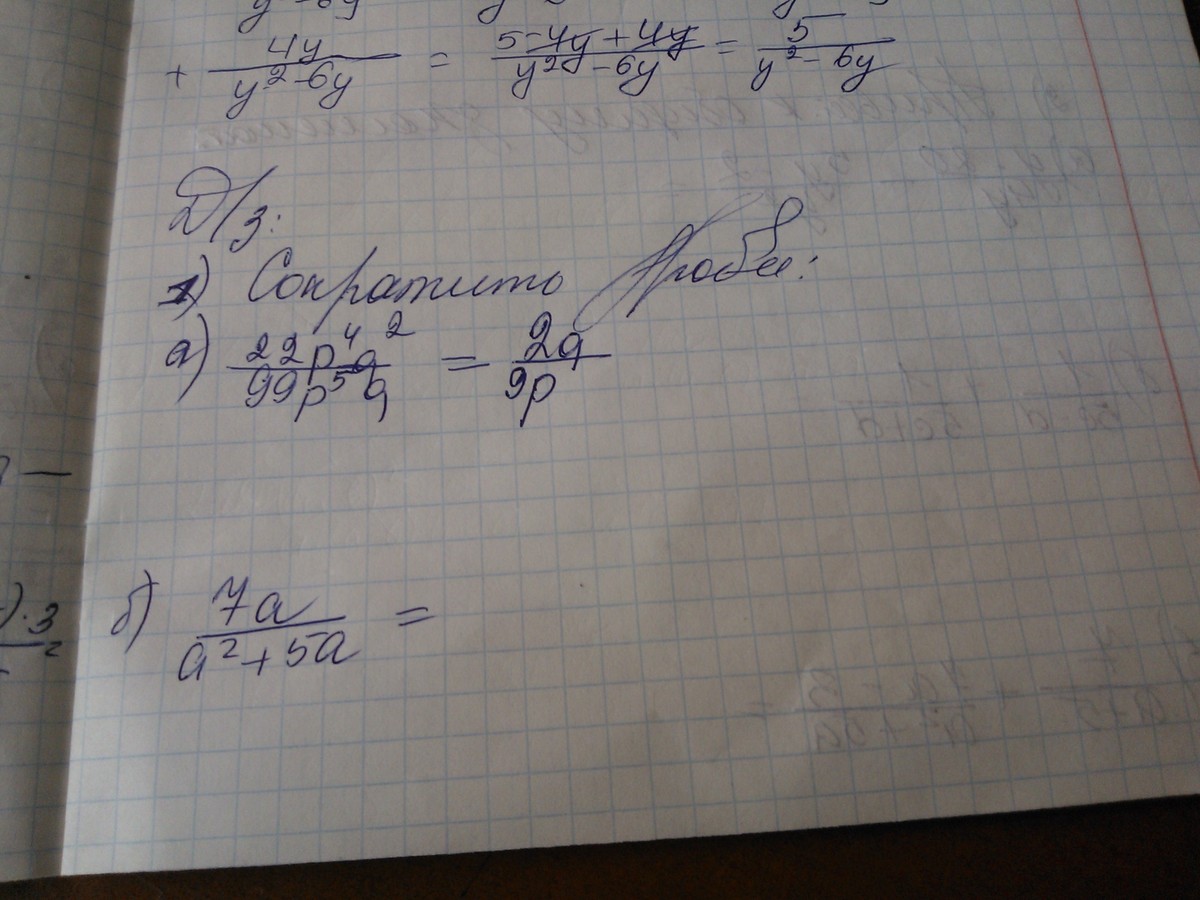 + 4y/(y²-6y) = (5-4y+4y)/(y²-6y) = 5/(y²-6y)
Д/з:
1) Сократить дроби:
а) 22p⁴q²/99p⁵q = 2q/9p
б) 7a/(a²+5a) =